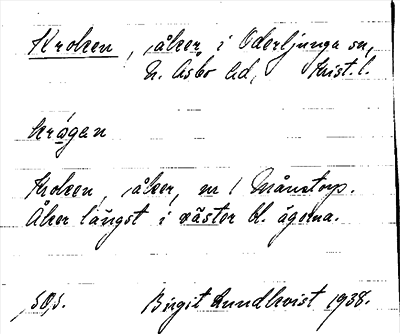 Kroken, åker i Oderljunga sn,
N. Åsbo hd, Krist. l.
krógan
Kroken, åker, nr 1 Månstorp.
Åker längst i väster bl. ägorna.
Birgit Lundkvist 1938.